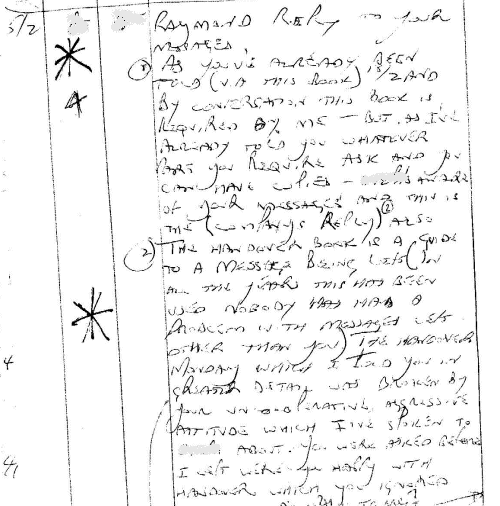 5/2 RAYMOND REPLY TO YOUR
MESSAGES,
① AS YOU'VE ALREADY BEEN
TOLD (VIA THIS BOOK) 15/2 AND
4 BY CONVERSATION THIS BOOK IS
REQUIRED BY ME - BUT AS I'VE
ALREADY TOLD YOU WHATEVER
PART YOU REQUIRE ASK AND YOU
CAN HAVE COPIES - AWARE
OF YOUR MESSAGES AND THIS IS
THE (COMPANY'S REPLY) ② ALSO
② THE HANDOVER BOOK IS A GUIDE
TO A MESSAGE BEING LEFT (IN
ALL THE YEARS THIS HAS BEEN
USED NOBODY HAS HAD A
PROBLEM WITH MESSAGES LEFT
OTHER THAN YOU) THE HANDOVER
4 MONDAY WHICH I TOLD YOU IN
GREATER DETAIL WAS BROKEN BY
YOUR UN-COOPERATIVE, AGGRESSIVE
ATTITUDE WHICH I'VE SPOKEN TO
4 ABOUT. YOU WERE ASKED BEFORE
I LEFT WERE YOU HAPPY WITH
HANDOVER WHICH YOU IGNORED